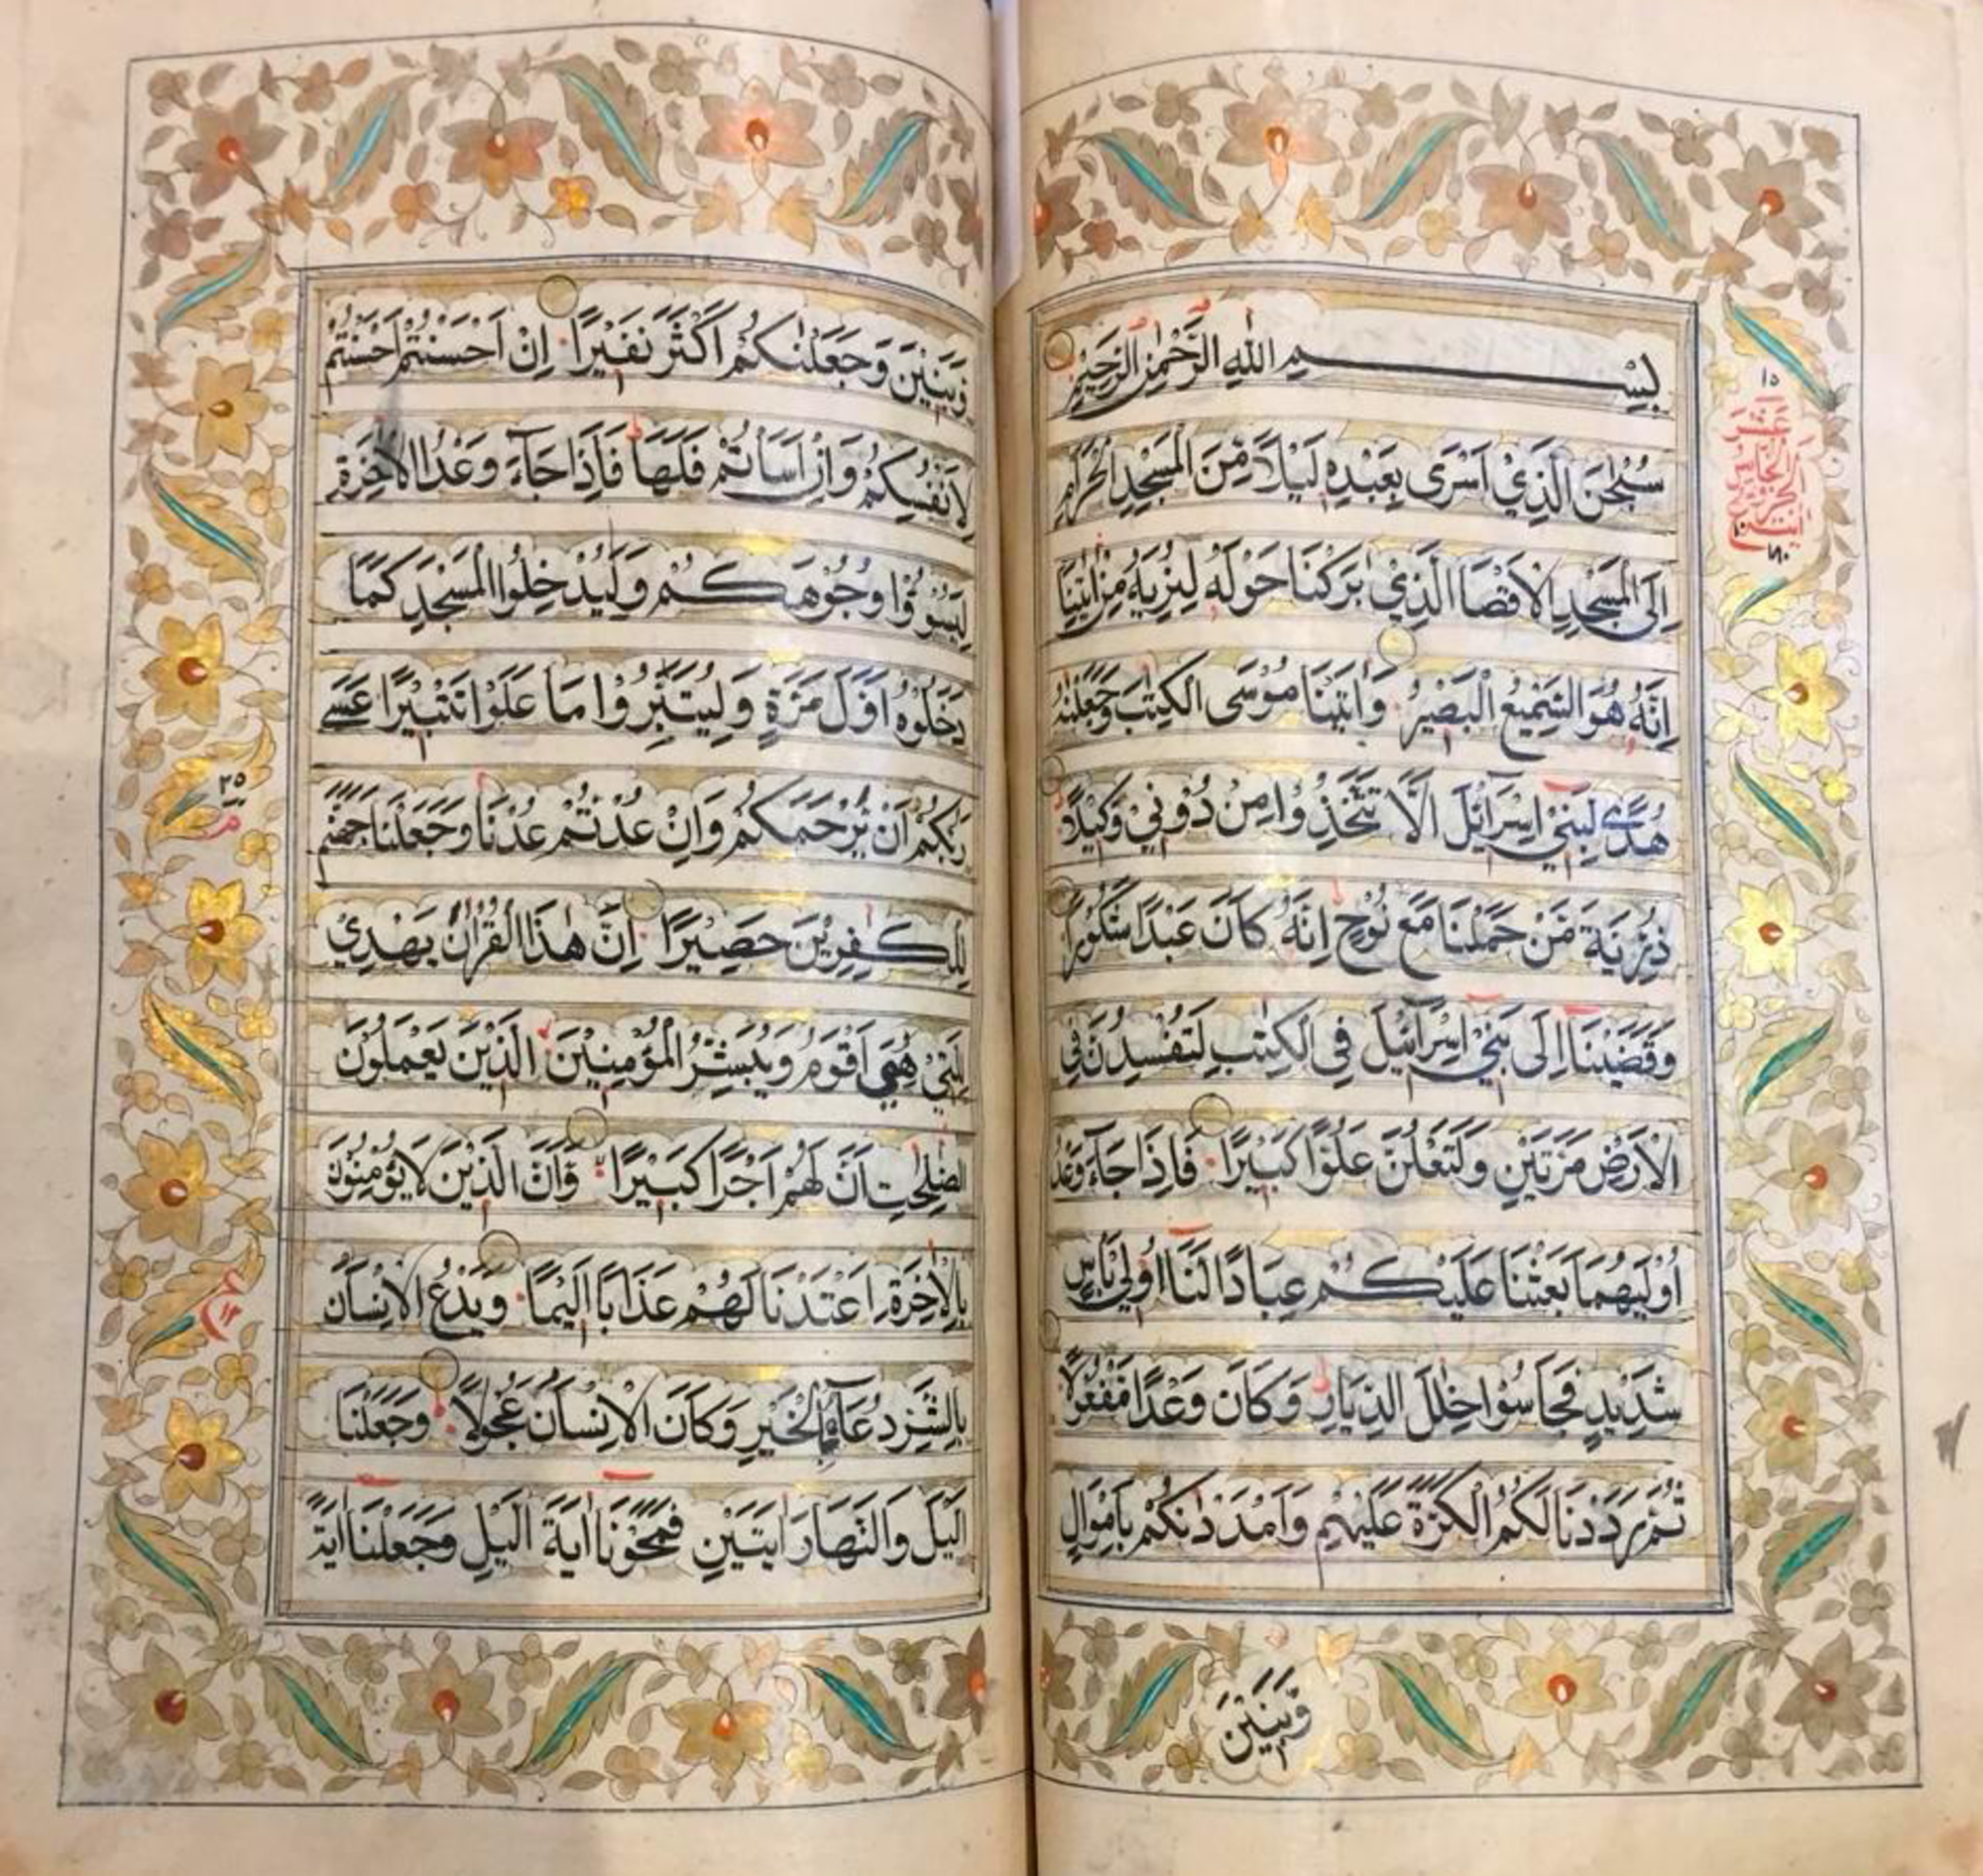 بِسْمِ اللهِ الرَّحْمٰنِ الرَّحِيْمِ
سُبْحٰنَ الَّذِيْ اَسْرَى بِعَبْدِهٖ لَيْلًا مِّنَ الْمَسْجِدِ الْحَرَامِ
اِلَى الْمَسْجِدِ الْاَقْصَا الَّذِيْ بٰرَكْنَا حَوْلَهٗ لِنُرِيَهٗ مِنْ اٰيٰتِنَا
اِنَّهٗ هُوَ السَّمِيْعُ الْبَصِيْرُ وَاٰتَيْنَا مُوْسَى الْكِتٰبَ وَجَعَلْنٰهُ
هُدًى لِّبَنِيْ اِسْرَآئِيْلَ اَلَّا تَتَّخِذُوْا مِنْ دُوْنِيْ وَكِيْلًا
ذُرِّيَّةَ مَنْ حَمَلْنَا مَعَ نُوْحٍ اِنَّهٗ كَانَ عَبْدًا شَكُوْرًا
وَقَضَيْنَا اِلَى بَنِيْ اِسْرَآئِيْلَ فِي الْكِتٰبِ لَتُفْسِدُنَّ فِي
الْاَرْضِ مَرَّتَيْنِ وَلَتَعْلُنَّ عُلُوًّا كَبِيْرًا فَاِذَا جَآءَ وَعْدُ
اُوْلٰىهُمَا بَعَثْنَا عَلَيْكُمْ عِبَادًا لَّنَا اُولِيْ بَاْسٍ
شَدِيْدٍ فَجَاسُوْا خِلٰلَ الدِّيَارِ وَكَانَ وَعْدًا مَّفْعُوْلًا
ثُمَّ رَدَدْنَا لَكُمُ الْكَرَّةَ عَلَيْهِمْ وَاَمْدَدْنٰكُمْ بِاَمْوَالٍ
وَّبَنِيْنَ
١٥
عَشَرَ
الْخَامِسُ
الجزو
وَّبَنِيْنَ وَجَعَلْنٰكُمْ اَكْثَرَ نَفِيْرًا اِنْ اَحْسَنْتُمْ اَحْسَنْتُمْ
لِاَنْفُسِكُمْ وَاِنْ اَسَاْتُمْ فَلَهَا فَاِذَا جَآءَ وَعْدُ الْاٰخِرَةِ
لِيَسُوْؤُا وُجُوْهَكُمْ وَلِيَدْخِلُوا الْمَسْجِدَ كَمَا
دَخَلُوْهُ اَوَّلَ مَرَّةٍ وَّلِيُتَبِّرُوْا مَا عَلَوْا تَتْبِيْرًا عَسٰى
رَبُّكُمْ اَنْ يَّرْحَمَكُمْ وَاِنْ عُدْتُّمْ عُدْنَا وَجَعَلْنَا جَهَنَّمَ
لِلْكٰفِرِيْنَ حَصِيْرًا اِنَّ هٰذَا الْقُرْاٰنَ يَهْدِيْ
لِلَّتِيْ هِيَ اَقْوَمُ وَيُبَشِّرُ الْمُؤْمِنِيْنَ الَّذِيْنَ يَعْمَلُوْنَ
الصّٰلِحٰتِ اَنَّ لَهُمْ اَجْرًا كَبِيْرًا وَّاَنَّ الَّذِيْنَ لَا يُؤْمِنُوْنَ
بِالْاٰخِرَةِ اَعْتَدْنَا لَهُمْ عَذَابًا اَلِيْمًا وَيَدْعُ الْاِنْسَانُ
بِالشَّرِّ دُعَآءَهٗ بِالْخَيْرِ وَكَانَ الْاِنْسَانُ عَجُوْلًا وَجَعَلْنَا
الَّيْلَ وَالنَّهَارَ اٰيَتَيْنِ فَمَحَوْنَا اٰيَةَ الَّيْلِ وَجَعَلْنَا اٰيَةَ
٢٥